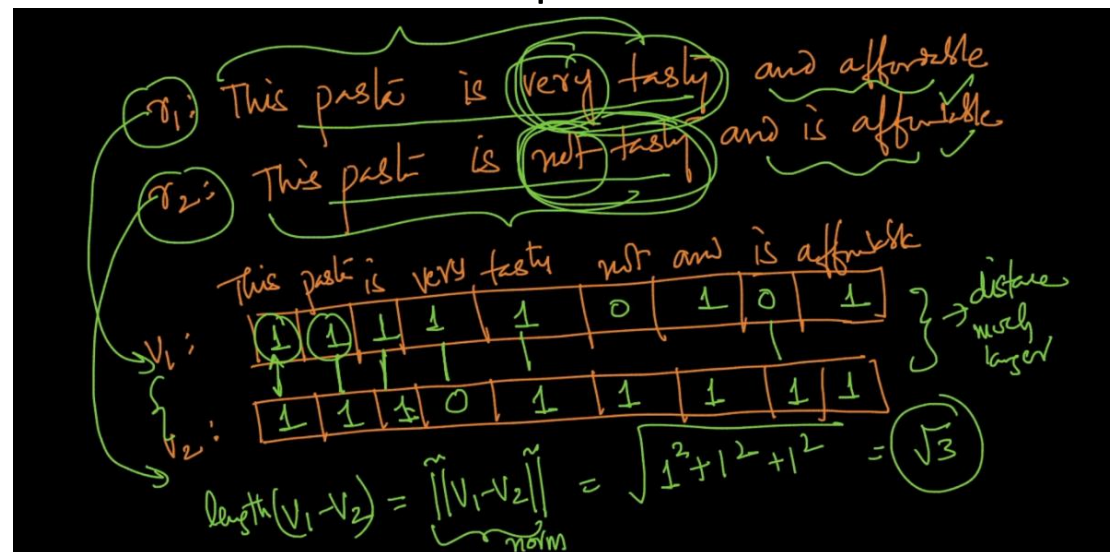 r₁: This pasta is very tasty and affordable ✓
r₂: This pasta is not tasty and is affordable ✓
This pasta is very tasty not and is affordable
v₁: 1 1 1 1 1 0 1 0 1 } → distance much larger
v₂: 1 1 1 0 1 1 1 1 1
length(v₁-v₂) = ||v₁-v₂|| = √1²+1²+1² = √3
norm